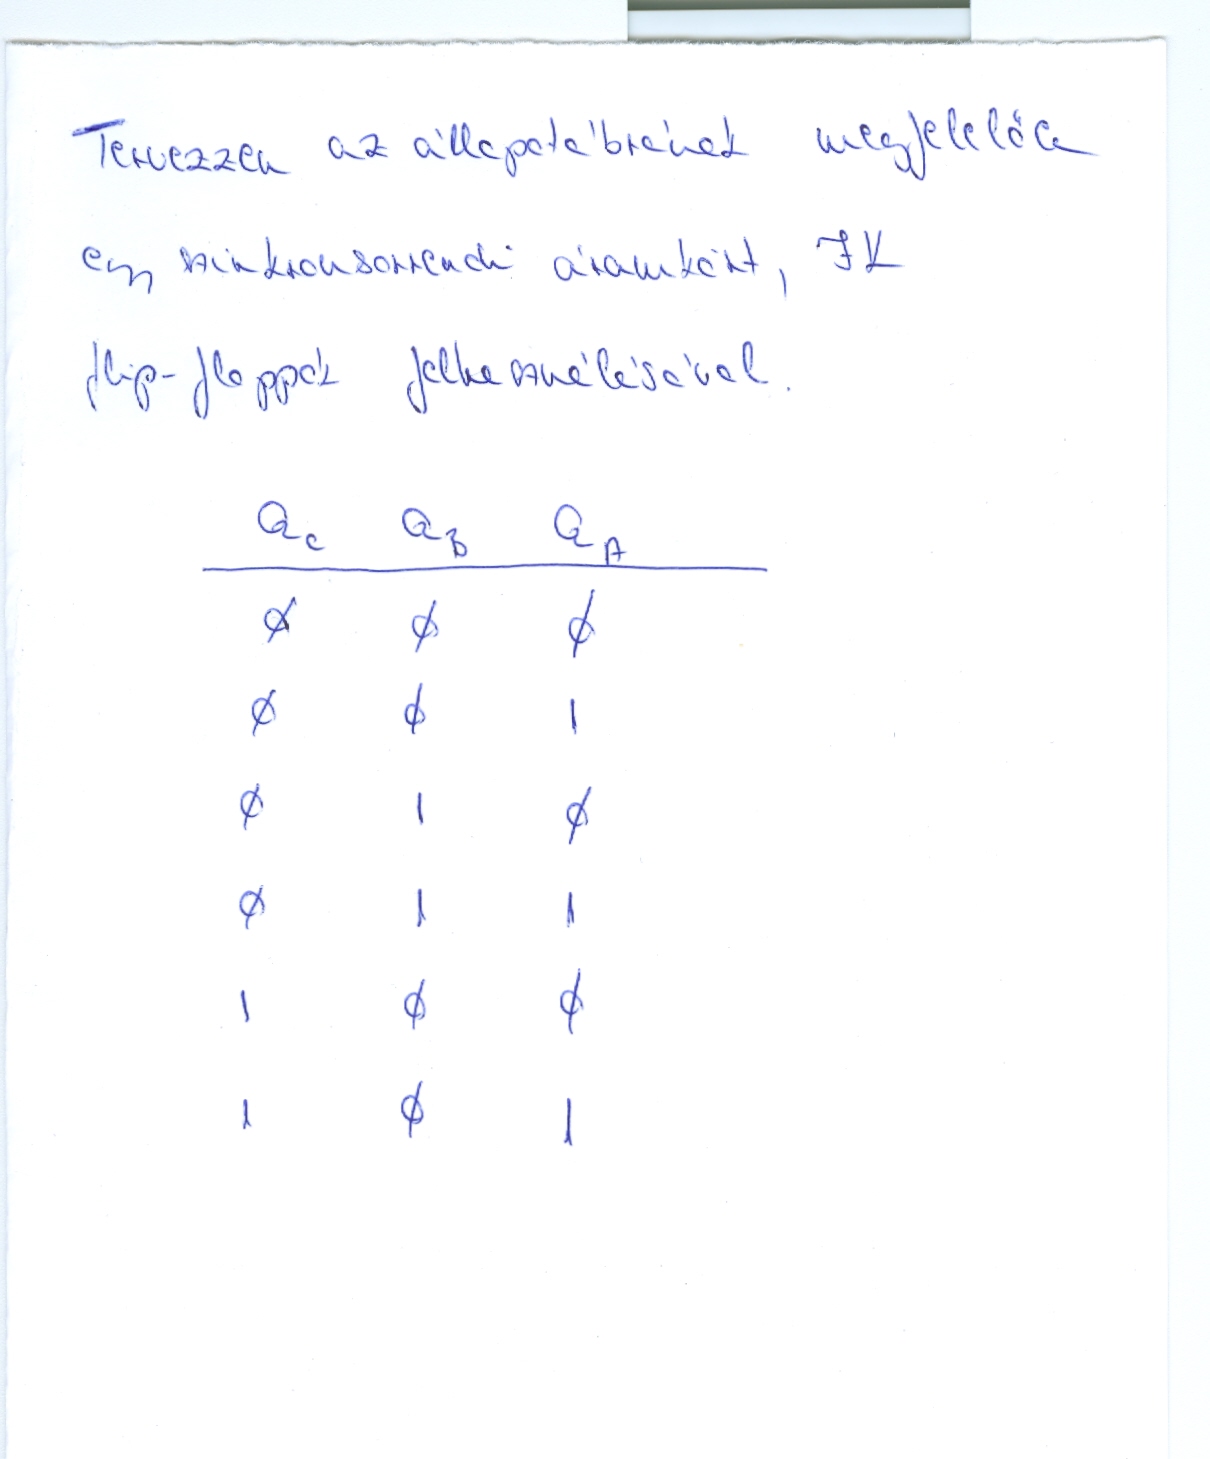 Tervezzen az állapotábrának megfelelően
egy szinkronsorrendi áramkört, JK
flip-floppok felhasználásával.
Qc QB QA
0 0 0
0 0 1
0 1 0
0 1 1
1 0 0
1 0 1